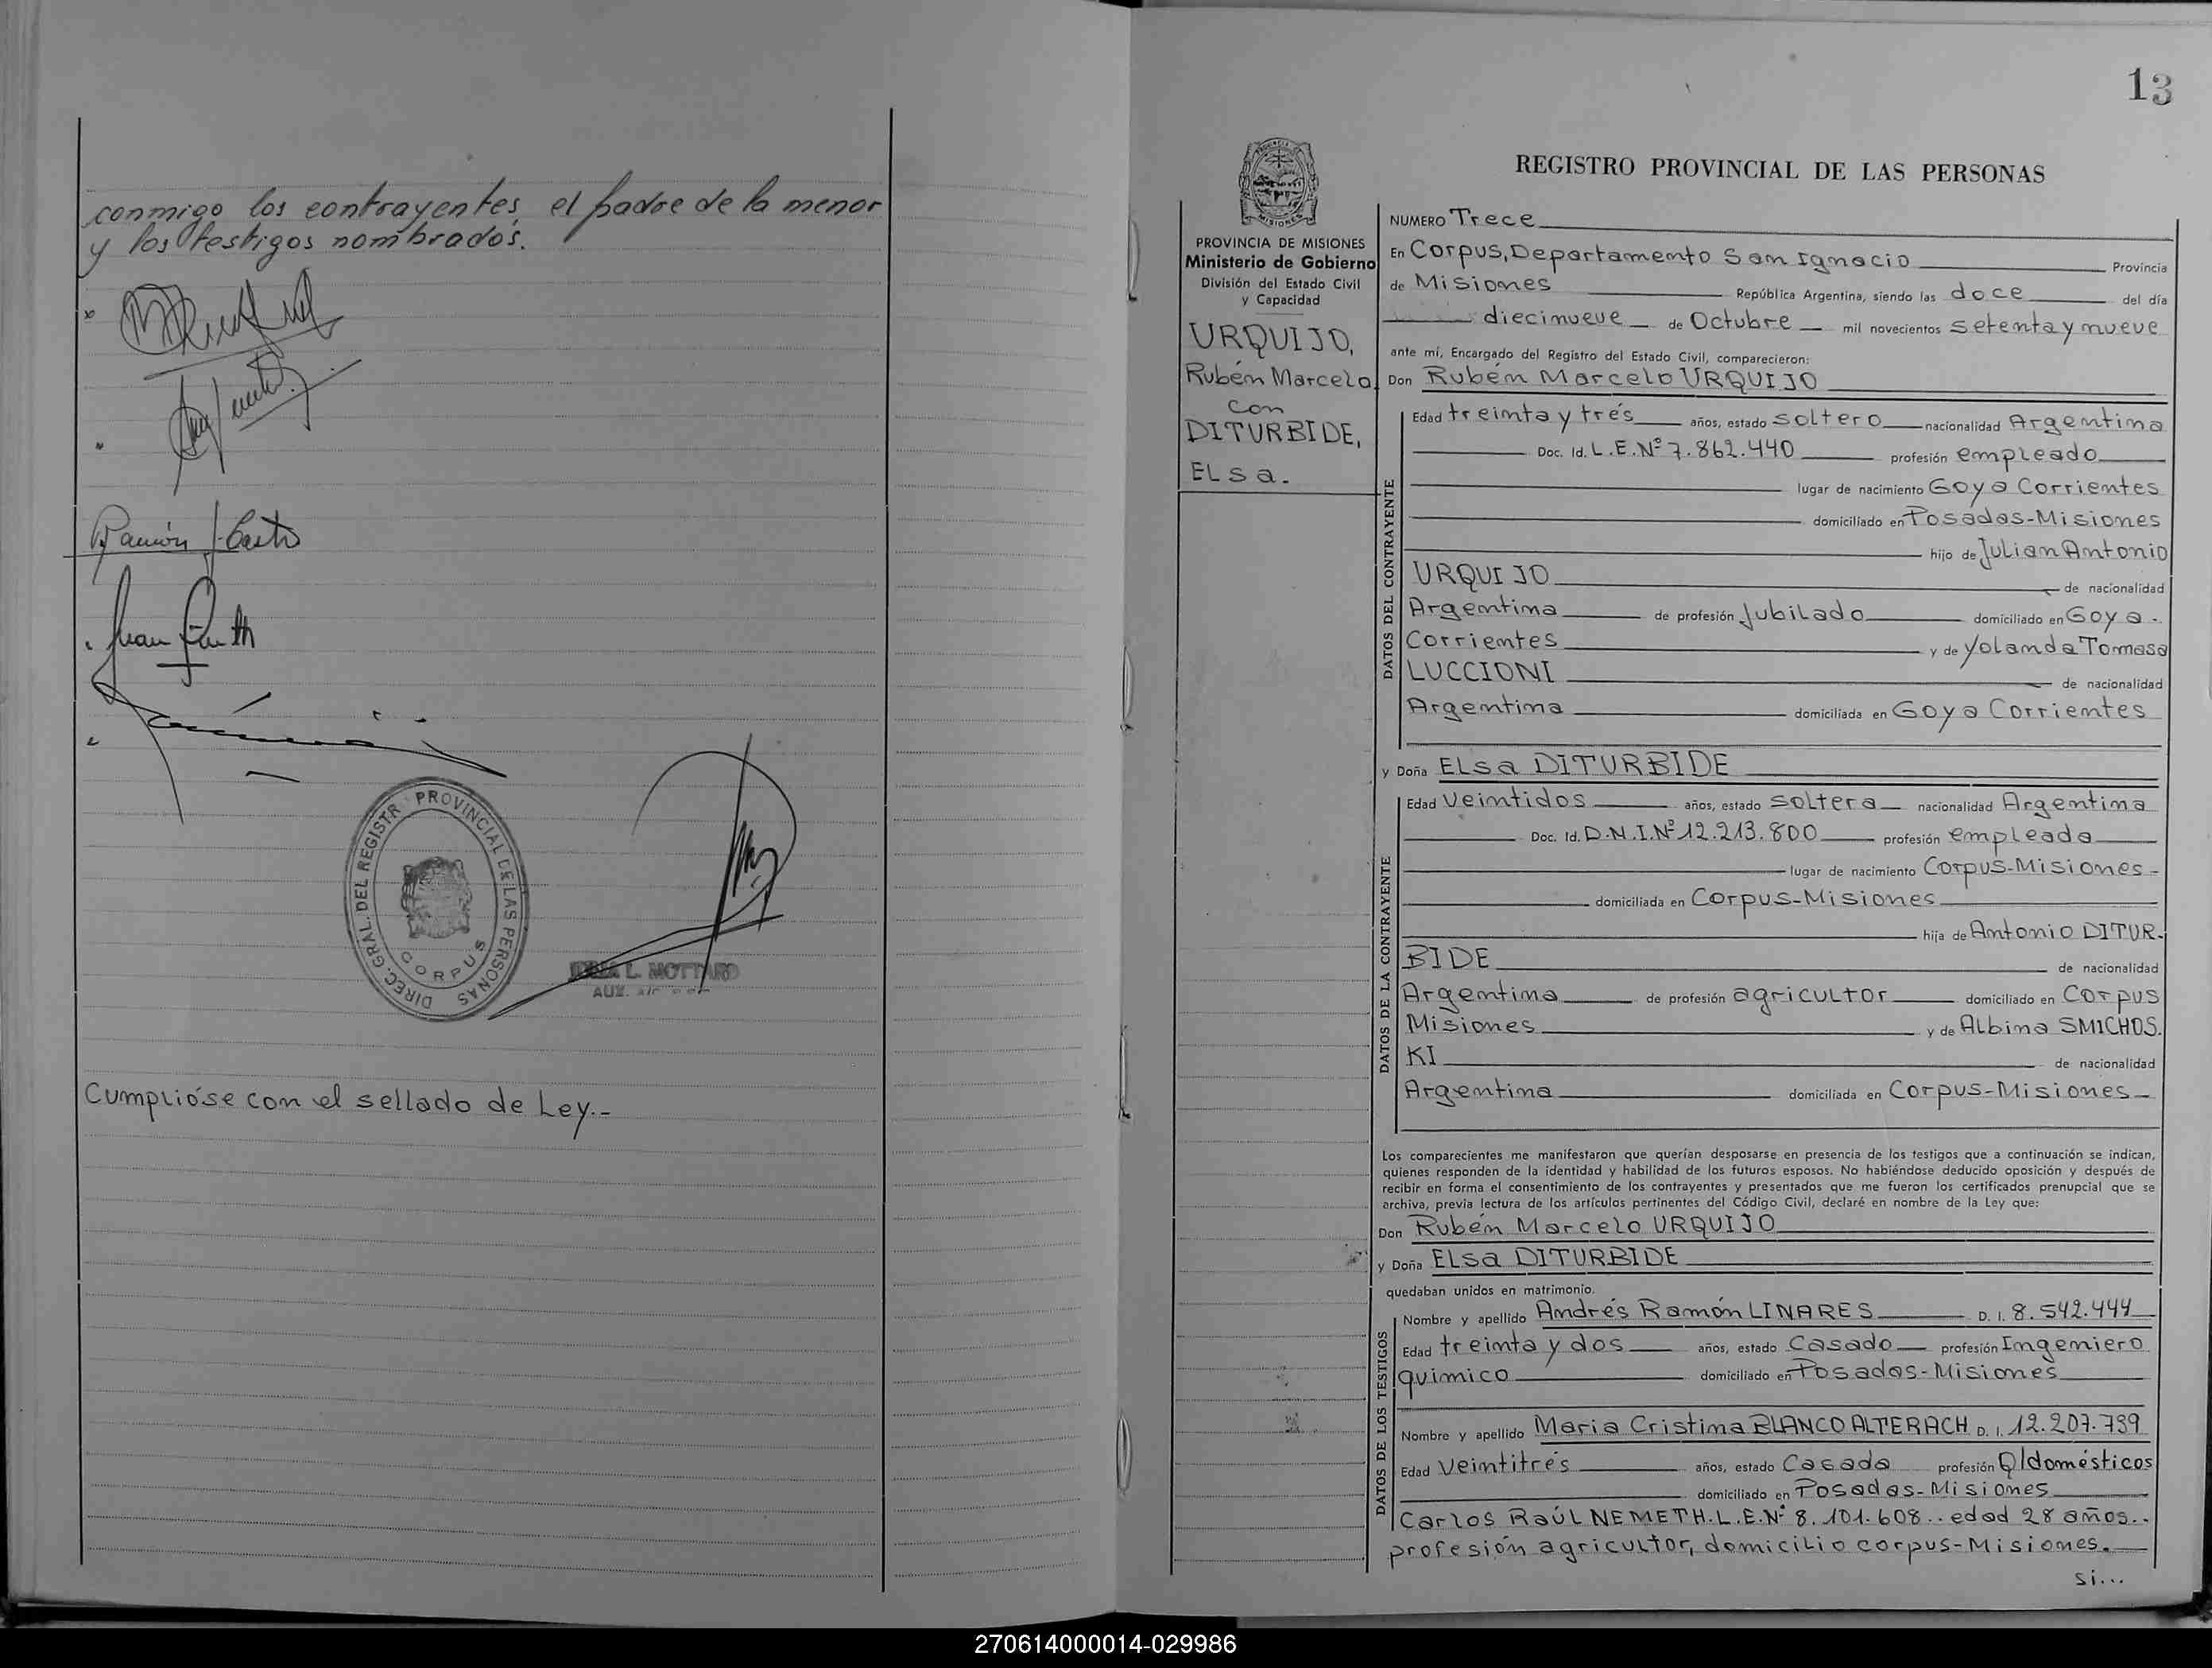 conmigo los contrayentes, el padre de la menor
y los testigos nombrados.
Ramón
Juan
DIREC. GRAL. DEL REGISTR PROVINCIAL DE LAS PERSONAS
CORPUS
L. MOTTARD
AUX.
Cumplióse con el sellado de Ley.-
13
PROVINCIA DE MISIONES
Ministerio de Gobierno
División del Estado Civil
y Capacidad
URQUIJO,
Rubén Marcelo
con
DITURBIDE,
ELsa.
REGISTRO PROVINCIAL DE LAS PERSONAS
NUMERO Trece
En Corpus, Departamento San Ignacio Provincia
de Misiones República Argentina, siendo las doce del día
diecinueve de Octubre mil novecientos setenta y nueve
ante mí, Encargado del Registro del Estado Civil, comparecieron:
Don Rubén Marcelo URQUIJO
DATOS DEL CONTRAYENTE
Edad treinta y trés años, estado soltero nacionalidad Argentina
Doc. Id. L.E.Nº 7.862.440 profesión empleado
lugar de nacimiento Goya Corrientes
domiciliado en Posadas-Misiones
hijo de Julian Antonio
URQUIJO de nacionalidad
Argentina de profesión Jubilado domiciliado en Goya.
Corrientes y de Yolanda Tomasa
LUCCIONI de nacionalidad
Argentina domiciliada en Goya Corrientes
y Doña ELsa DITURBIDE
DATOS DE LA CONTRAYENTE
Edad Veintidos años, estado soltera nacionalidad Argentina
Doc. Id. D.N.I.Nº 12.213.800 profesión empleada
lugar de nacimiento Corpus-Misiones-
domiciliada en Corpus-Misiones
hija de Antonio DITUR-
BIDE de nacionalidad
Argentina de profesión agricultor domiciliado en Corpus
Misiones y de Albina SMICHOS.
KI de nacionalidad
Argentina domiciliada en Corpus-Misiones-
Los comparecientes me manifestaron que querían desposarse en presencia de los testigos que a continuación se indican,
quienes responden de la identidad y habilidad de los futuros esposos. No habiéndose deducido oposición y después de
recibir en forma el consentimiento de los contrayentes y presentados que me fueron los certificados prenupcial que se
archiva, previa lectura de los artículos pertinentes del Código Civil, declaré en nombre de la Ley que:
Don Rubén Marcelo URQUIJO
y Doña ELsa DITURBIDE
quedaban unidos en matrimonio.
DATOS DE LOS TESTIGOS
Nombre y apellido Andrés Ramón LINARES D. I. 8.542.444
Edad treinta y dos años, estado Casado profesión Ingeniero
químico domiciliado en Posadas-Misiones
Nombre y apellido Maria Cristina BLANCO ALTERACH D. I. 12.207.739
Edad Veintitrés años, estado Casada profesión Q/domésticos
domiciliado en Posadas-Misiones
Carlos Raúl NEMETH.L.E.Nº 8.101.608.. edad 28 años..
profesión agricultor, domicilio corpus-Misiones.
si...
270614000014-029986